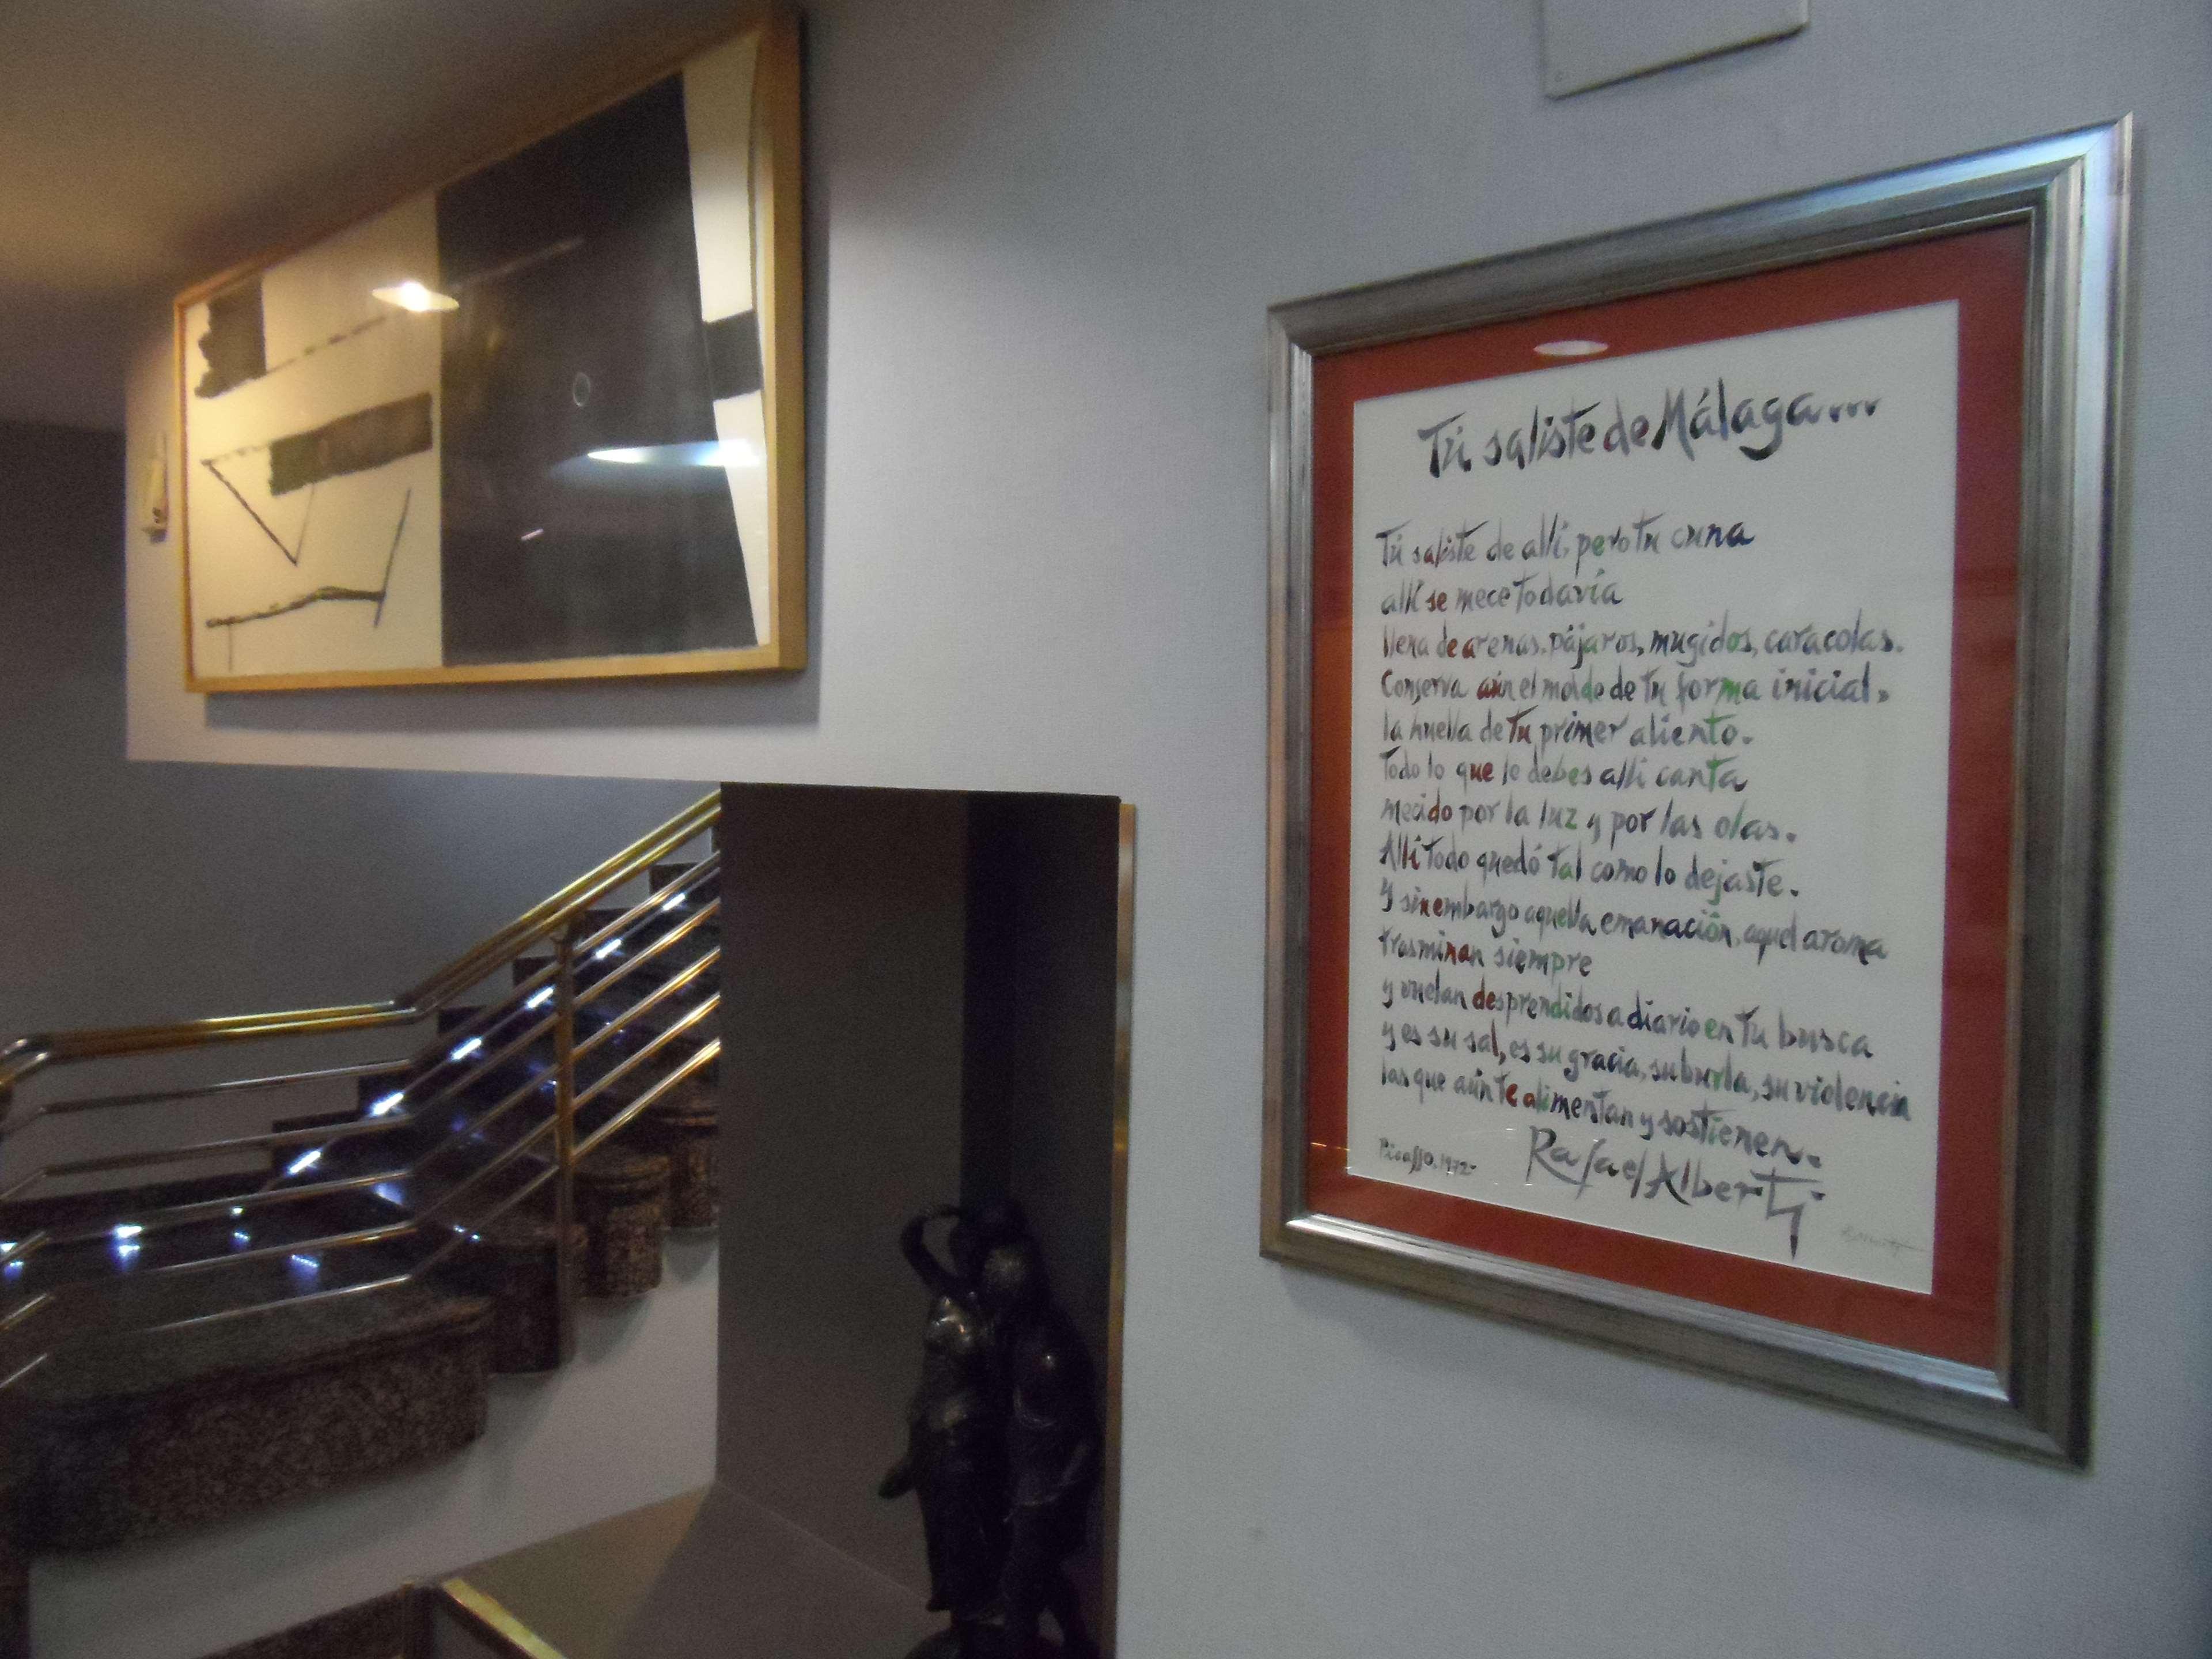 Tú saliste de Málaga...
Tú saliste de allí, pero tu cuna
allí se mece todavía
llena de arenas, pájaros, mugidos, caracolas.
Conserva aún el molde de tu forma inicial,
la huella de tu primer aliento.
Todo lo que le debes allí canta
mecido por la luz y por las olas.
Allí todo quedó tal como lo dejaste.
Y sin embargo aquella emanación, aquel aroma
trasminan siempre
y vuelan desprendidos a diario en tu busca
y es su sal, es su gracia, su burla, su violencia
las que aún te alimentan y sostienen.
Picasso, 1972-
Rafael Alberti